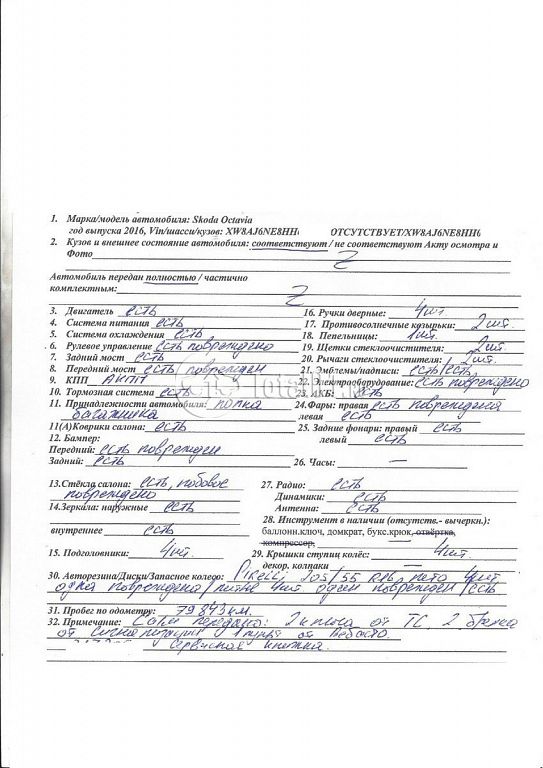 1. Марка/модель автомобиля: Skoda Octavia
год выпуска 2016, Vin/шасси/кузов: XW8AJ6NE8HH ОТСУТСТВУЕТ/XW8AJ6NE8HH
2. Кузов и внешнее состояние автомобиля: соответствуют / не соответствуют Акту осмотра и
Фото Z
Автомобиль передан полностью / частично
комплектным: Z
3. Двигатель есть
4. Система питания есть
5. Система охлаждения есть
6. Рулевое управление есть повреждено
7. Задний мост есть
8. Передний мост есть поврежден
9. КПП АКПП
10. Тормозная система есть
11. Принадлежности автомобиля: полка
багажника
11(А)Коврики салона: есть
12. Бампер:
Передний: есть поврежден
Задний: есть
13.Стёкла салона: есть, лобовое
повреждено
14.Зеркала: наружные есть
внутреннее есть
15. Подголовники: 4шт.
16. Ручки дверные: 4шт.
17. Противосолнечные козырьки: 2шт.
18. Пепельницы: 1шт.
19. Щетки стеклоочистителя: 2шт.
20. Рычаги стеклоочистителя: 2шт.
21. Эмблемы/надписи: есть/есть
22. Электрооборудование: есть повреждено
23. АКБ: есть
24.Фары: правая есть повреждена
левая есть
25. Задние фонари: правый есть
левый есть
26. Часы: —
27. Радио: есть
Динамики: есть
Антенна: есть
28. Инструмент в наличии (отсутств.- вычеркн.):
баллонн.ключ, домкрат, букс.крюк, отвёртка,
компрессор,
29. Крышки ступиц колёс: 4шт.
декор. колпаки —
30. Авторезина/Диски/Запасное колесо: Pirelli 205/55 R16, лето 4шт.
одна повреждена/литье 4шт. один поврежден/есть
31. Пробег по одометру: 79843км.
32. Примечание: Сам передано: 2 ключа от ТС, 2 брелка
от сигнализации 1 пульт от Вебасто.
Сервисная книжка.